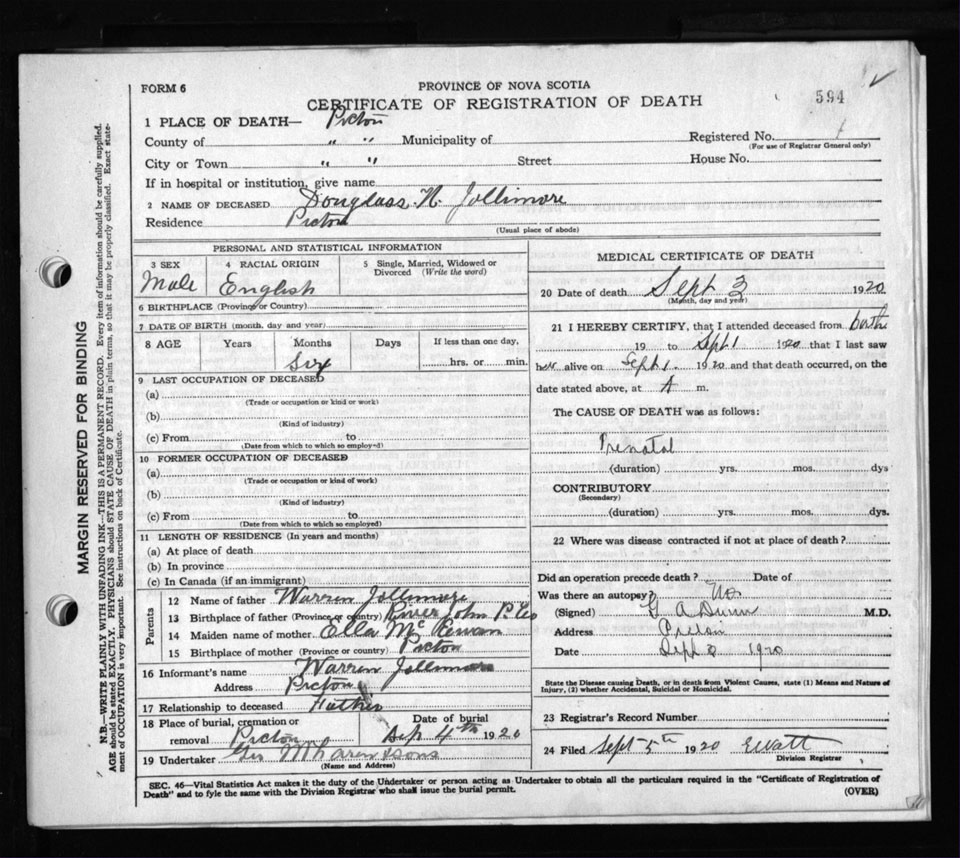 FORM 6
PROVINCE OF NOVA SCOTIA
CERTIFICATE OF REGISTRATION OF DEATH
594
1 PLACE OF DEATH— Picton
County of " " Municipality of
Registered No.
(For use of Registrar General only)
City or Town " " Street
House No.
If in hospital or institution, give name
2 NAME OF DECEASED Douglass H. Jollimore
Residence Picton
(Usual place of abode)
PERSONAL AND STATISTICAL INFORMATION
3 SEX Male
4 RACIAL ORIGIN English
5 Single, Married, Widowed or Divorced (Write the word)
6 BIRTHPLACE (Province or Country)
7 DATE OF BIRTH (month, day and year)
8 AGE Years Months Days If less than one day,
Six hrs. or min.
9 LAST OCCUPATION OF DECEASED
(a)
(Trade or occupation or kind or work)
(b)
(Kind of industry)
(c) From to
(Date from which to which so employed)
10 FORMER OCCUPATION OF DECEASED
(a)
(Trade or occupation or kind of work)
(b)
(Kind of industry)
(c) From to
(Date from which to which so employed)
11 LENGTH OF RESIDENCE (In years and months)
(a) At place of death
(b) In province
(c) In Canada (if an immigrant)
Parents
12 Name of father Warren Jollimore
13 Birthplace of father (Province or country) River John P. Co
14 Maiden name of mother Ella Mc
15 Birthplace of mother (Province or country) Picton
16 Informant's name Warren Jollimore
Address Picton
17 Relationship to deceased Father
18 Place of burial, cremation or removal Picton
Date of burial Sep 4th 1920
19 Undertaker Sons
(Name and Address)
MEDICAL CERTIFICATE OF DEATH
20 Date of death Sept 3 1920
(Month, day and year)
21 I HEREBY CERTIFY, that I attended deceased from birth
19 to Sept 1 1920 that I last saw
him alive on Sept 1. 1920 and that death occurred, on the
date stated above, at A m.
The CAUSE OF DEATH was as follows:
Prenatal
(duration) yrs. mos. dys
CONTRIBUTORY
(Secondary)
(duration) yrs. mos. dys.
22 Where was disease contracted if not at place of death?
Did an operation precede death? Date of
Was there an autopsy? No
(Signed) G A Dunn M.D.
Address Picton
Date Sept 1920
State the Disease causing Death, or in death from Violent Causes, state (1) Means and Nature of Injury, (2) whether Accidental, Suicidal or Homicidal.
23 Registrar's Record Number
24 Filed Sept 5th 1920 E Watt
Division Registrar
SEC. 46—Vital Statistics Act makes it the duty of the Undertaker or person acting as Undertaker to obtain all the particulars required in the "Certificate of Registration of
Death" and to fyle the same with the Division Registrar who shall issue the burial permit.
(OVER)
MARGIN RESERVED FOR BINDING
N.B.—WRITE PLAINLY WITH UNFADING INK—THIS IS A PERMANENT RECORD. Every item of information should be carefully supplied.
AGE should be stated EXACTLY. PHYSICIANS should STATE CAUSE OF DEATH in plain terms, so that it may be properly classified. Exact statement of OCCUPATION is very important. See instructions on back of Certificate.